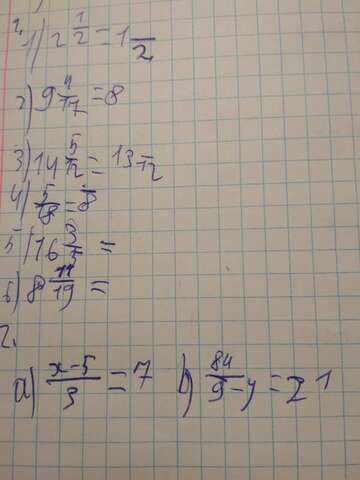 1.
1) 2 1/2 = 1 /2
2) 9 4/17 = 8
3) 14 5/12 = 13 /12
4) 5/8 = /8
5) 16 3/5 =
6) 8 11/19 =
2.
a) x-5/3 = 7 b) 84/9-y = 21